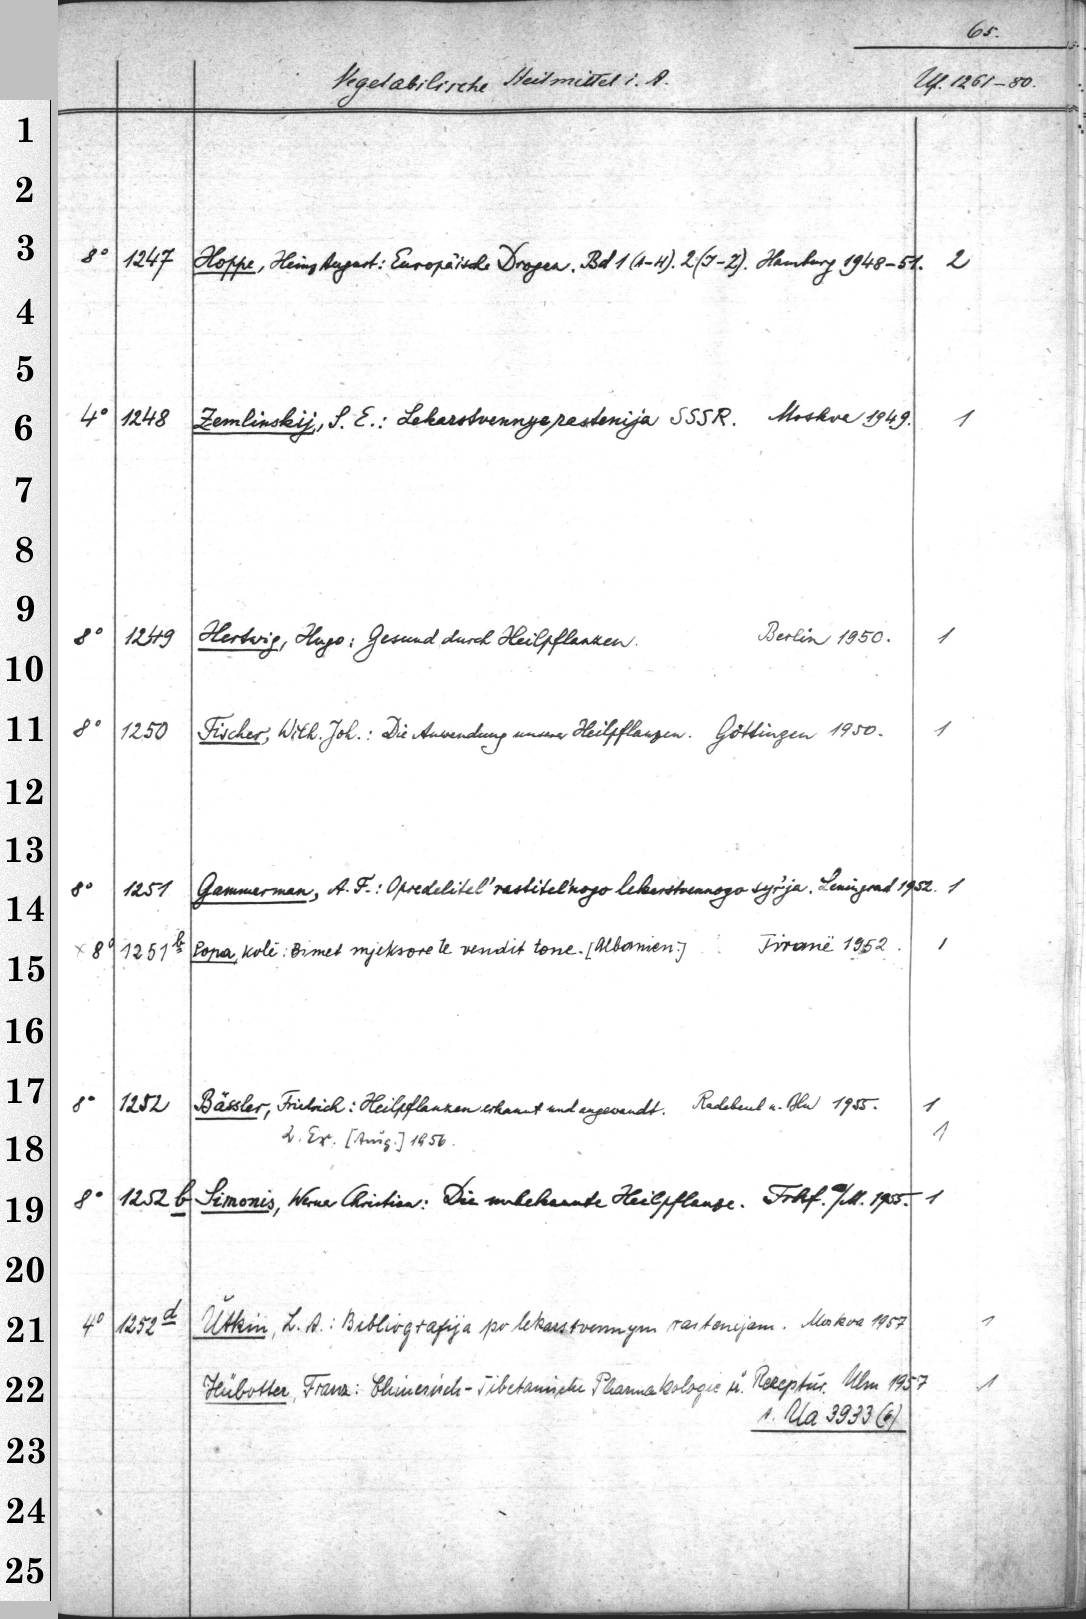 65.
Vegetabilische Heilmittel i. A. Uf. 1261-80.
1
2
3 8° 1247 Hoppe, Heinz August: Europäische Drogen. Bd 1 (A-H). 2 (J-Z). Hamburg 1948-51. 2
4
5
6 4° 1248 Zemlinskij, S. E.: Lekarstvennye rastenija SSSR. Moskva 1949. 1
7
8
9
8° 1249 Hertwig, Hugo: Gesund durch Heilpflanzen. Berlin 1950. 1
10
11 8° 1250 Fischer, Wilh. Joh.: Die Anwendung unserer Heilpflanzen. Göttingen 1950. 1
12
13
14 8° 1251 Gammerman, A. F.: Opredelitel' rastitel'nogo lekarstvennogo syr'ja. Leningrad 1952. 1
15 × 8° 1251 b Popa, Kolë: Bimet mjeksore te vendit tone. [Albanien.] Tiranë 1952. 1
16
17 8° 1252 Bässler, Friedrich: Heilpflanzen erkannt und angewandt. Radebeul u. Bln 1955. 1
18 2. Ex. [Aufl.] 1956. 1
19 8° 1252 b Simonis, Werner Christian: Die unbekannte Heilpflanze. Frkf. a/M. 1955. 1
20
21 4° 1252 d Utkin, L. A.: Bibliografija po lekarstvennym rastenijam. Moskva 1957 1
22 Hübotter, Franz: Chinesisch-Tibetanische Pharmakologie u. Rezeptur. Ulm 1957 1
s. Ua 3933 (6)
23
24
25